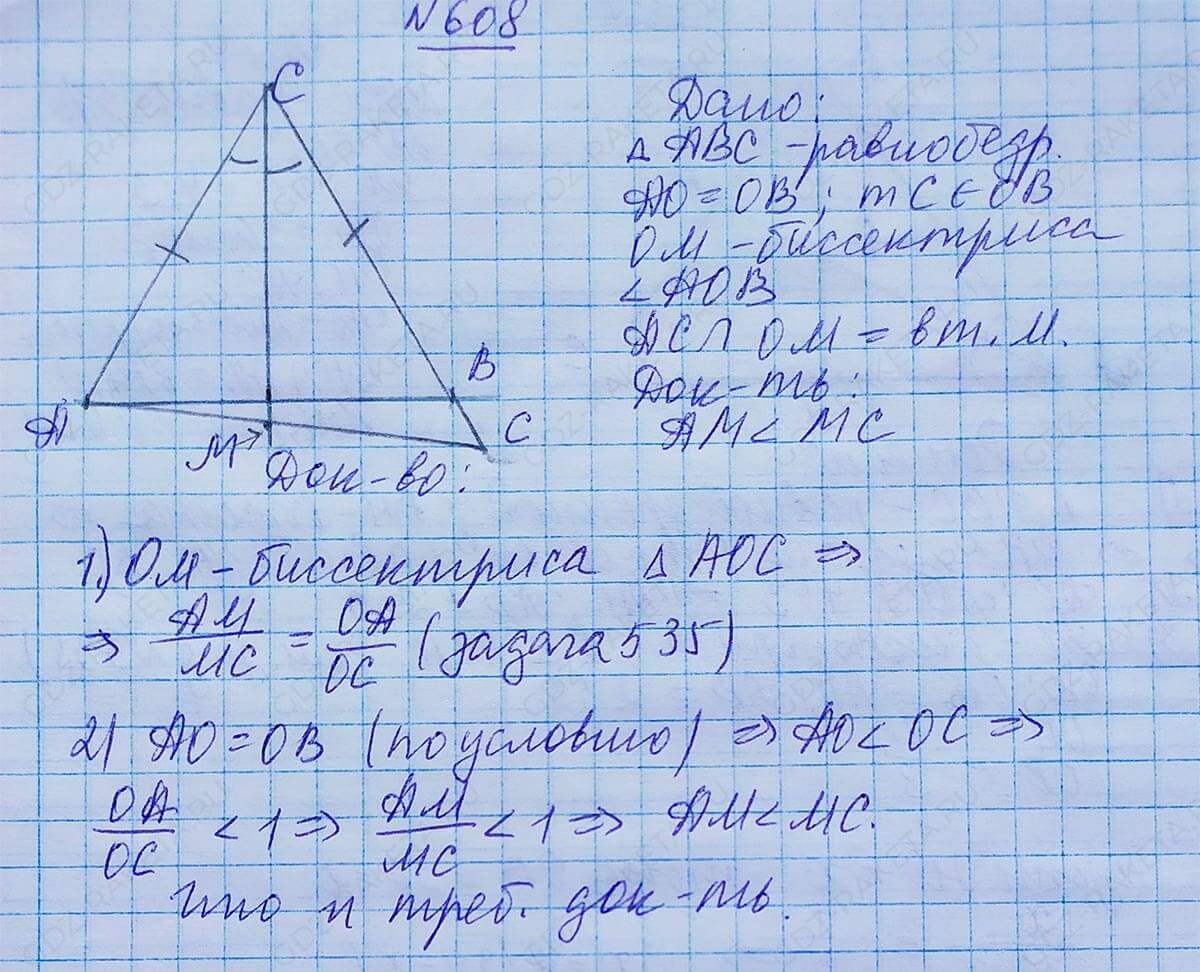 №608
C
Дано:
△ ABC - равнобедр.
AO = OB ; т C ∈ OB
OM - биссектриса
< AOB
AC ∩ OM = в т. M.
Док-ть :
AM < MC
A
B
C
M
Док-во :
1) OM - биссектриса △ AOC ⇒
⇒ AM/MC = OA/OC (задача 535)
2) AO = OB (по условию) ⇒ AO < OC ⇒
OA/OC < 1 ⇒ AM/MC < 1 ⇒ AM < MC.
Что и треб. док-ть.